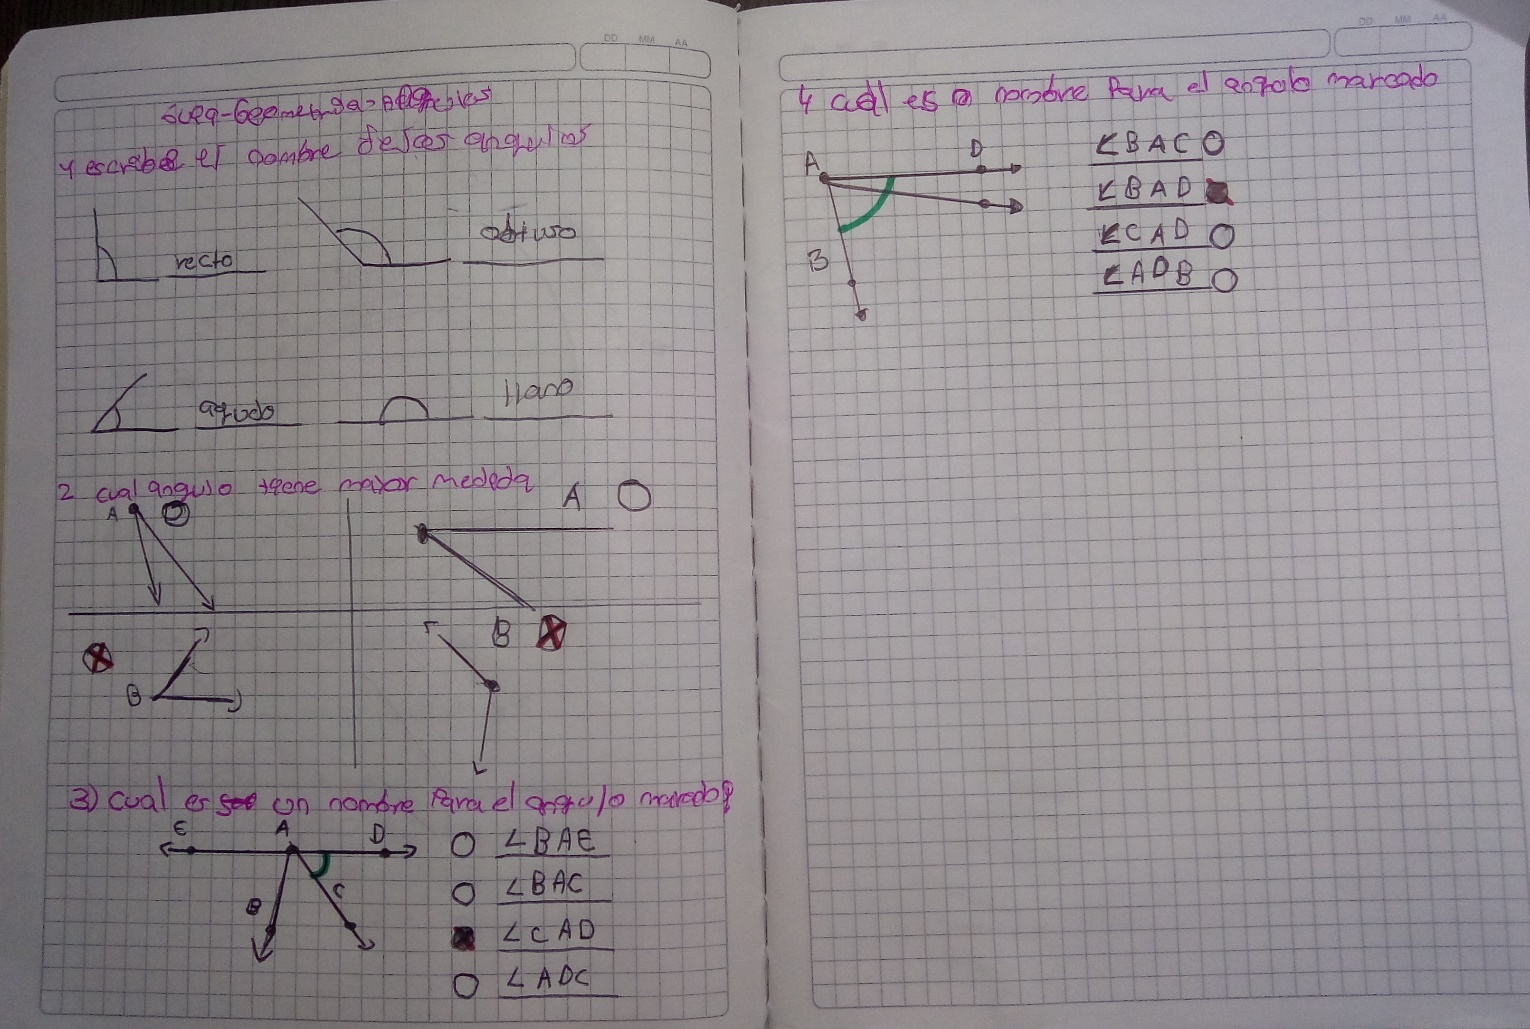 DD MM AA
y escrebe el nombre de los angulos
recto
obtuso
agudo
llano
2 cual angulo tiene mayor medida
A
A
B
B
3) cual es un nombre Para el angulo marcado?
E A D
B C
∠BAE
∠BAC
∠CAD
∠ADC
DD MM AA
4 cual es nombre Para el angulo marcado
A D
B
∠BAC
∠BAD
∠CAD
∠ADB